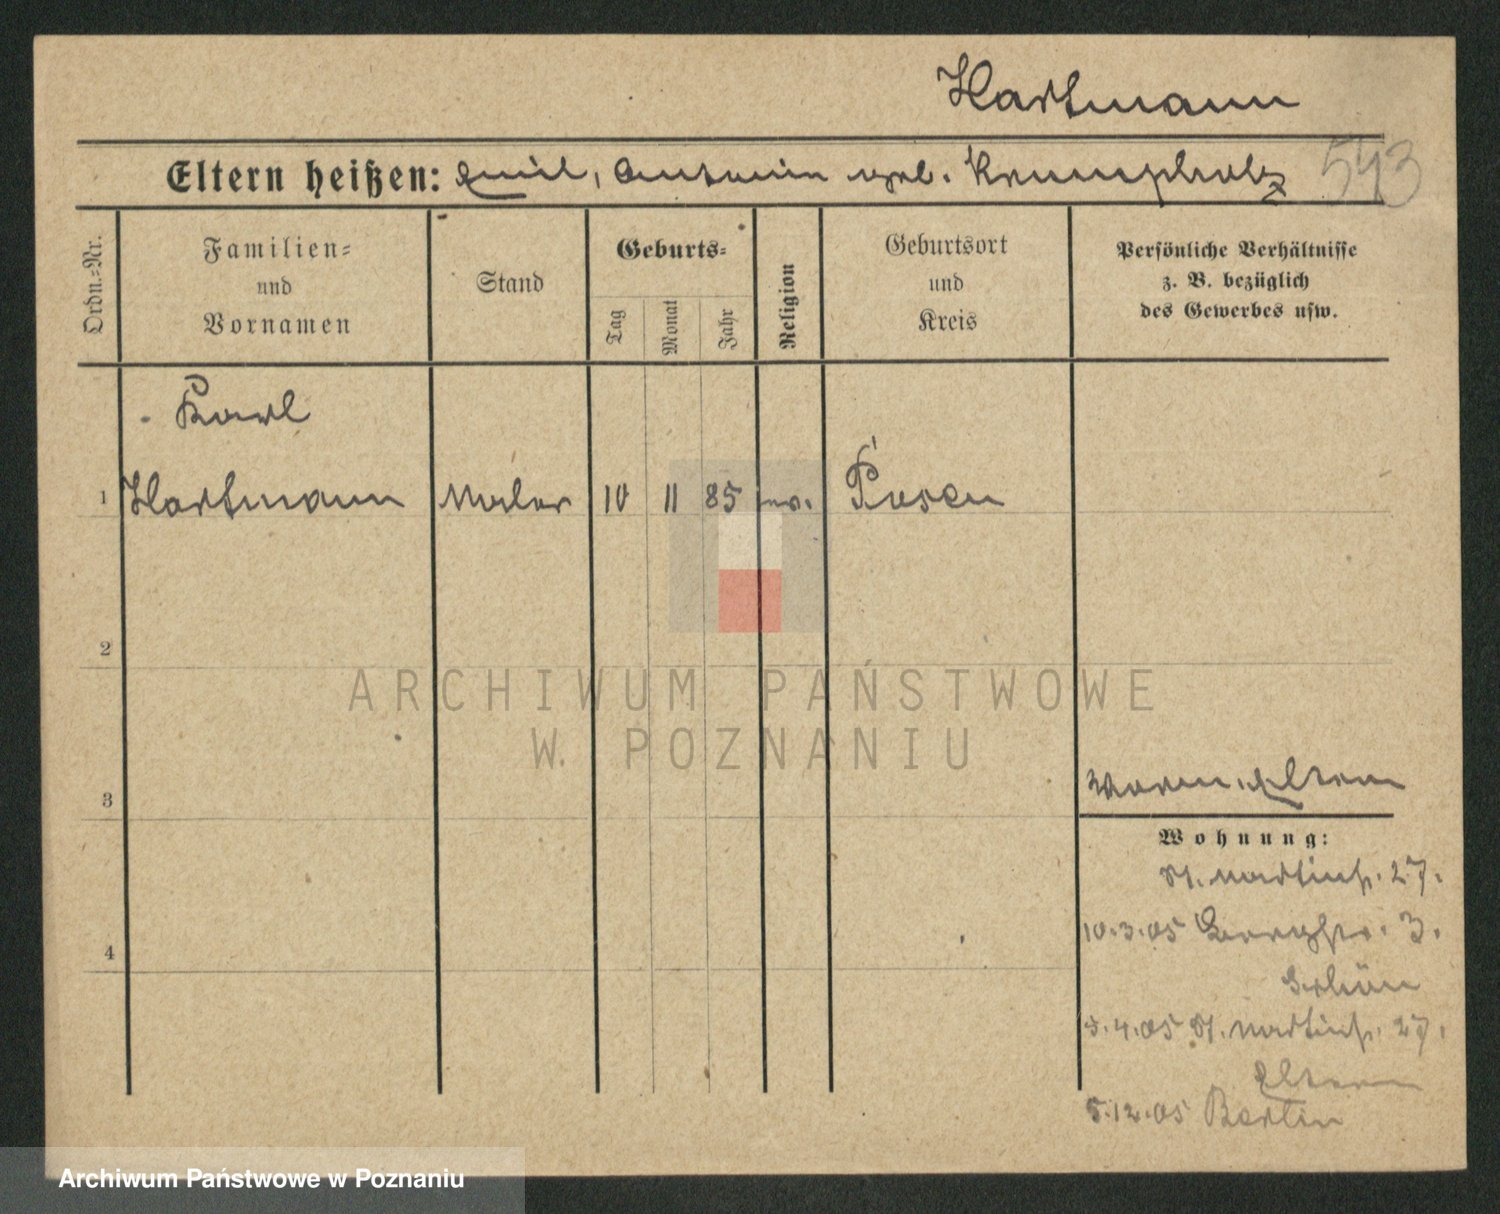 Hartmann
Eltern heißen: Emil, Antonie geb. Krumpholz 543
Ordn.-Nr.
Familien-
und
Vornamen
Stand
Geburts-
Tag
Monat
Jahr
Religion
Geburtsort
und
Kreis
Persönliche Verhältnisse
z. B. bezüglich
des Gewerbes usw.
Karl
1 Hartmann Maler 10 11 85 ev. Posen
2
ARCHIWUM PAŃSTWOWE
W POZNANIU
3
Eltern
Wohnung:
St. Martinstr. 27.
10.3.05 3.
Schön
4
3.4.05 St. Martinstr. 27.
Eltern
5.12.05 Berlin
Archiwum Państwowe w Poznaniu